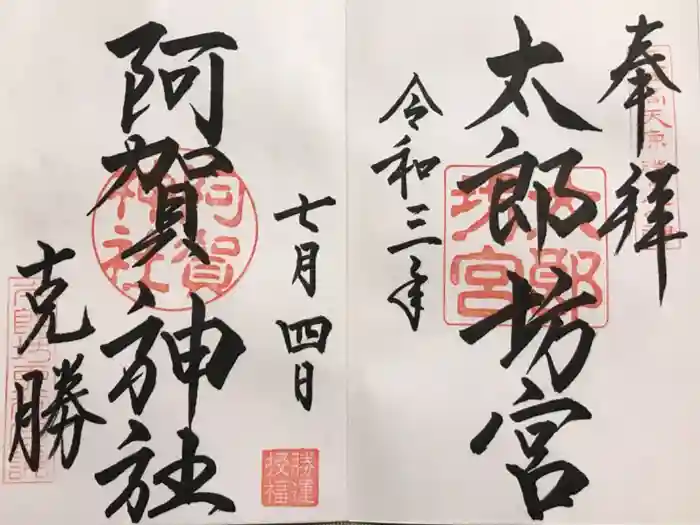 奉拝
太郎坊宮
太郎坊宮
令和三年
七月四日
勝運授福
阿賀神社
阿賀神社
克勝